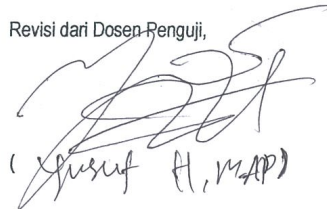 Revisi dari Dosen Penguji,
( Yusuf H, MAP)